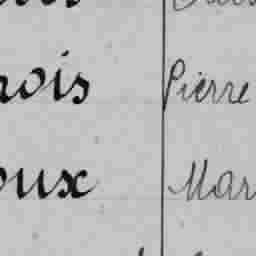 rois Pierre
oux Mar